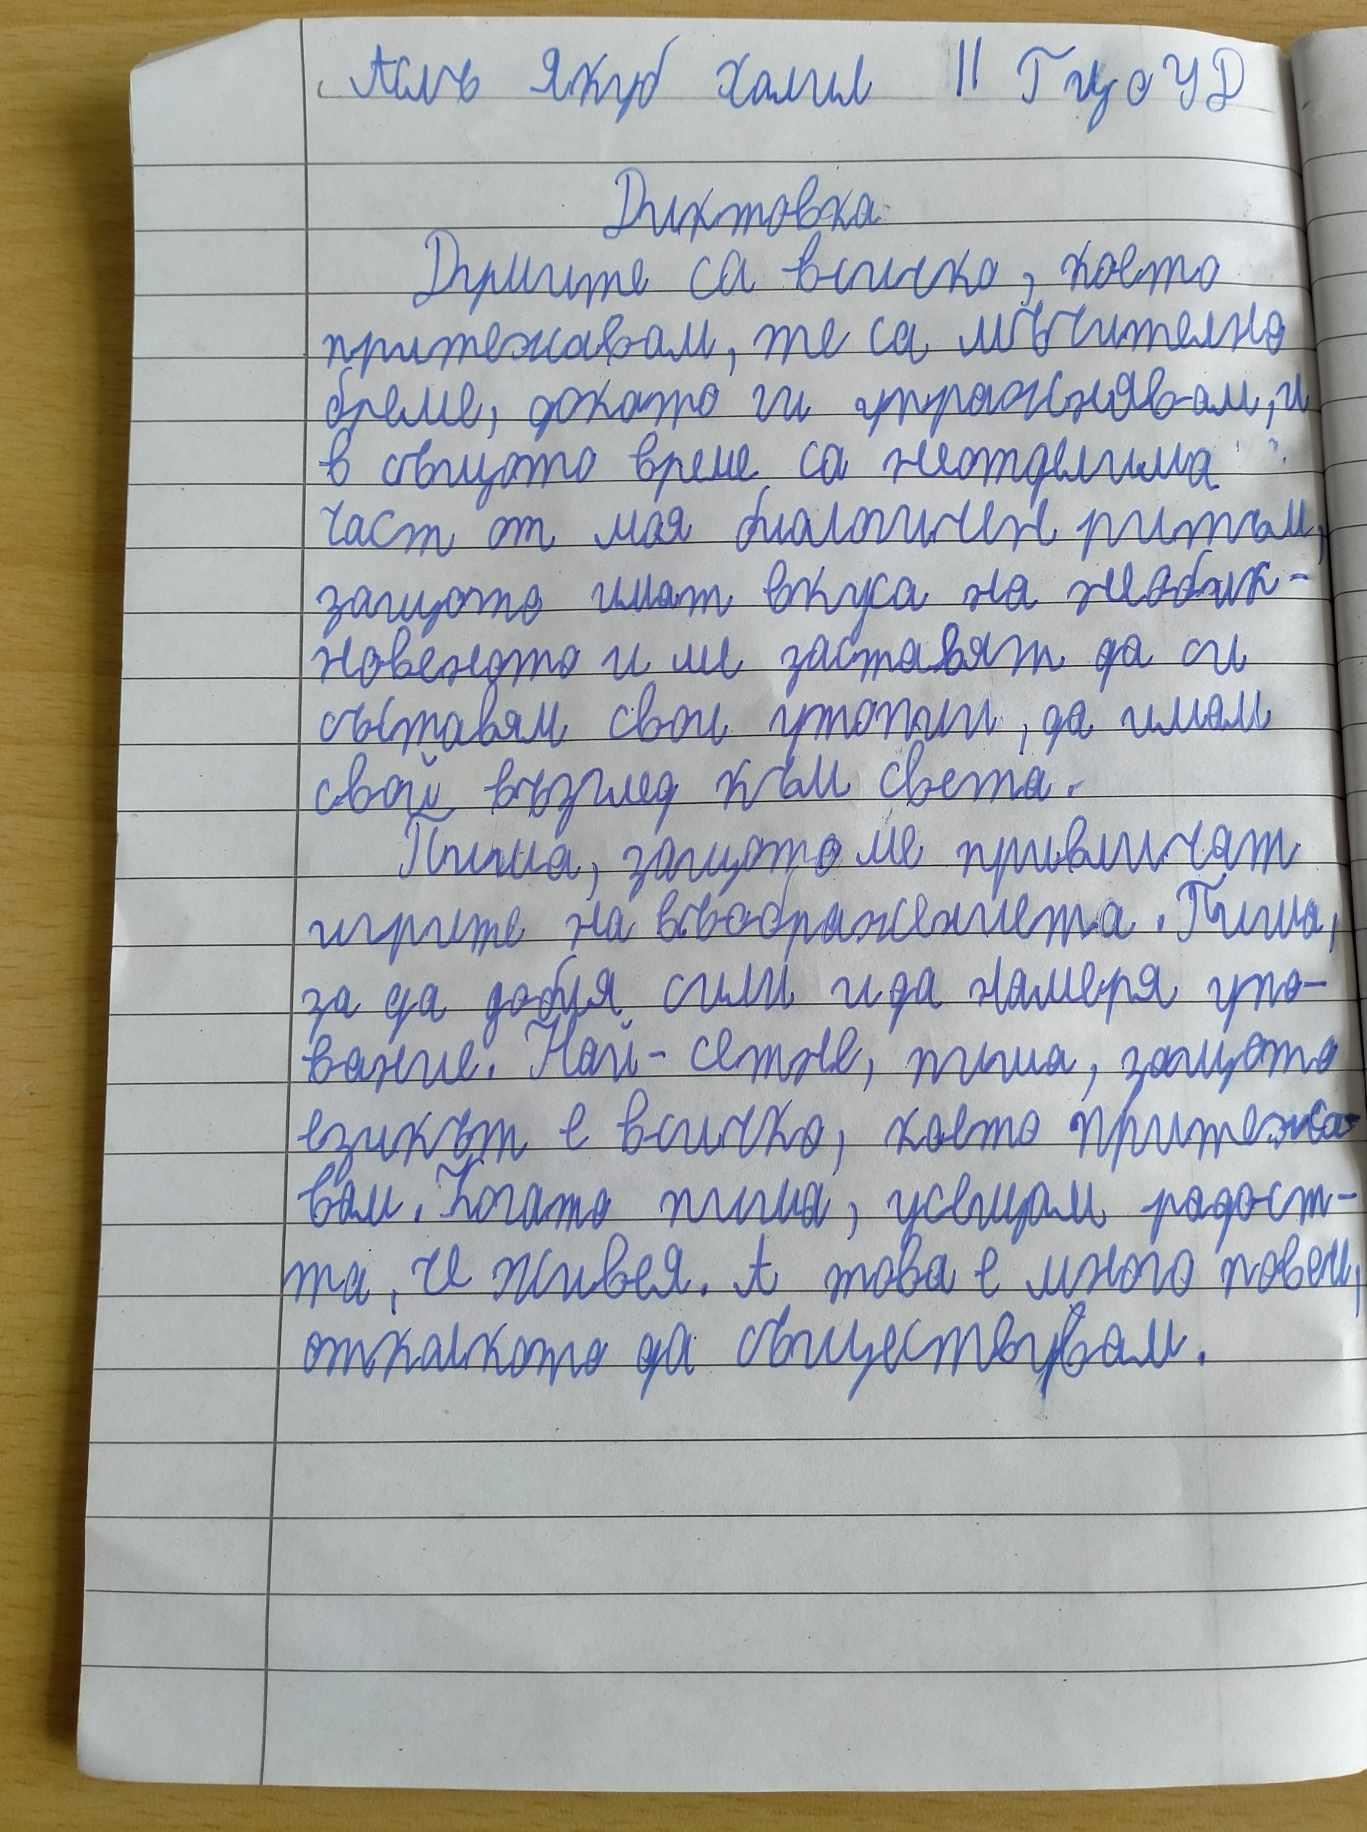 Аслъ Якуб Халил 11 Г ЦОУД
Диктовка
Думите са всичко, което
притежавам, те са мъчително
бреме, докато ги упражнявам, и
в същото време са неотделима
част от моя биологичен ритъм,
защото имат вкуса на необик-
новеното и ме заставят да си
съставям свои утопии, да имам
свой възглед към света.
Пиша, защото ме привличат
игрите на въображението. Пиша,
за да добия сили и да намеря упо-
вание. Най-сетне, пиша, защото
езикът е всичко, което притежа-
вам. Когато пиша, усещам радост-
та, че живея. А това е много повеч,
отколкото да съществувам.